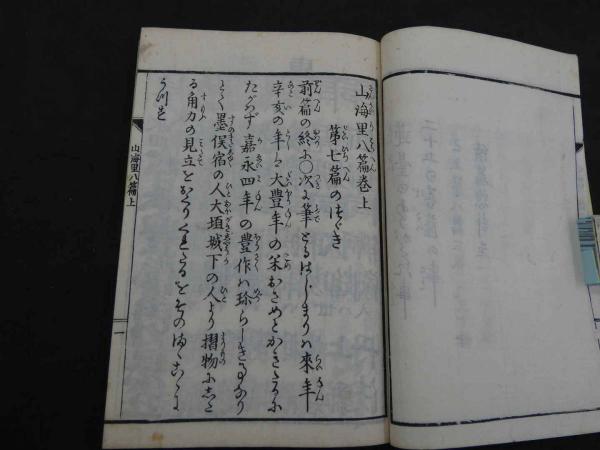 山海里八篇巻上
第七篇のつゞき
前篇の終に〇次に筆とるはじまりハ來年
辛亥の年と大豊年の米おさめとかきたるに
たがはず嘉永四年の豊作ハ珍らしき事なり
とて墨俣宿の人大垣城下の人より摺物にしたる
角力の見立をおくりくれたるをそのまゝこゝに
うつす
山海里八篇上
一